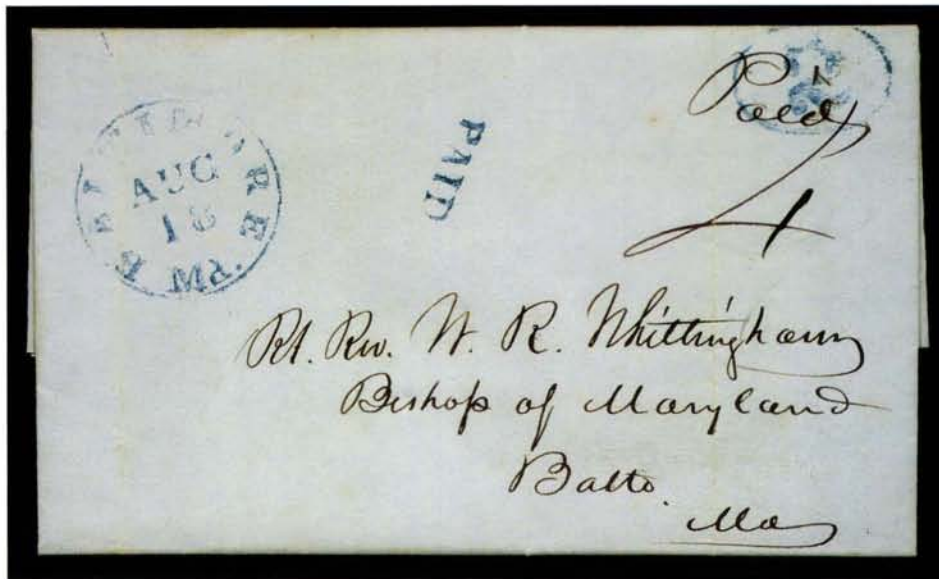 BALTIMORE MD.
AUG
18
PAID
Paid
4
Rt. Rev. W. R. Whittingham
Bishop of Maryland
Balto.
Md